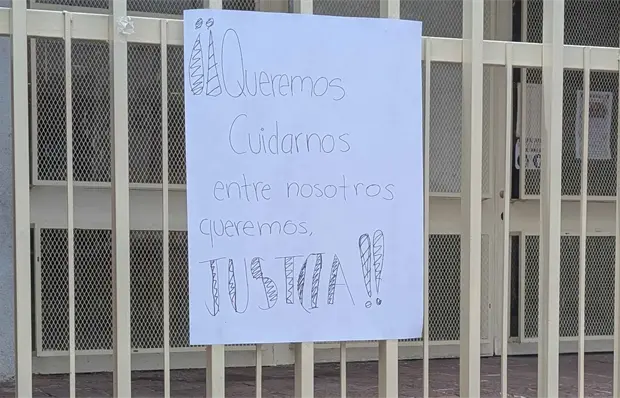 ¡¡Queremos
Cuidarnos
entre nosotros
queremos,
JUSTICIA!!